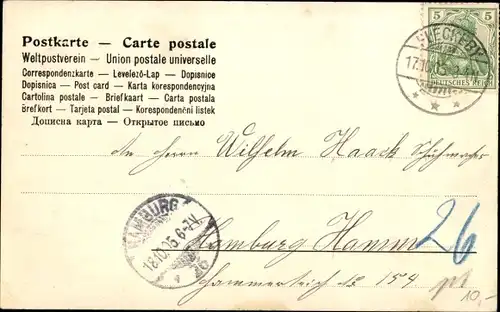 Postkarte — Carte postale
Weltpostverein — Union postale universelle
Correspondenzkarte — Levelező-Lap — Dopisnice
Dopisnica — Post card — Karta korespondencyjna
Cartolina postale — Briefkaart — Carta postala
Brefkort — Tarjeta postal — Korespondenční listek
Дописна карта — Открытое письмо
5 5
DEUTSCHES REICH
FLECKEBY
17.10.05. 5-6
An Herrn Wilhelm Haack Schuhmacher
HAMBURG
18.10.05. 6-7V.
Hamburg Hamm
26
Hammerteich № 154
10,-